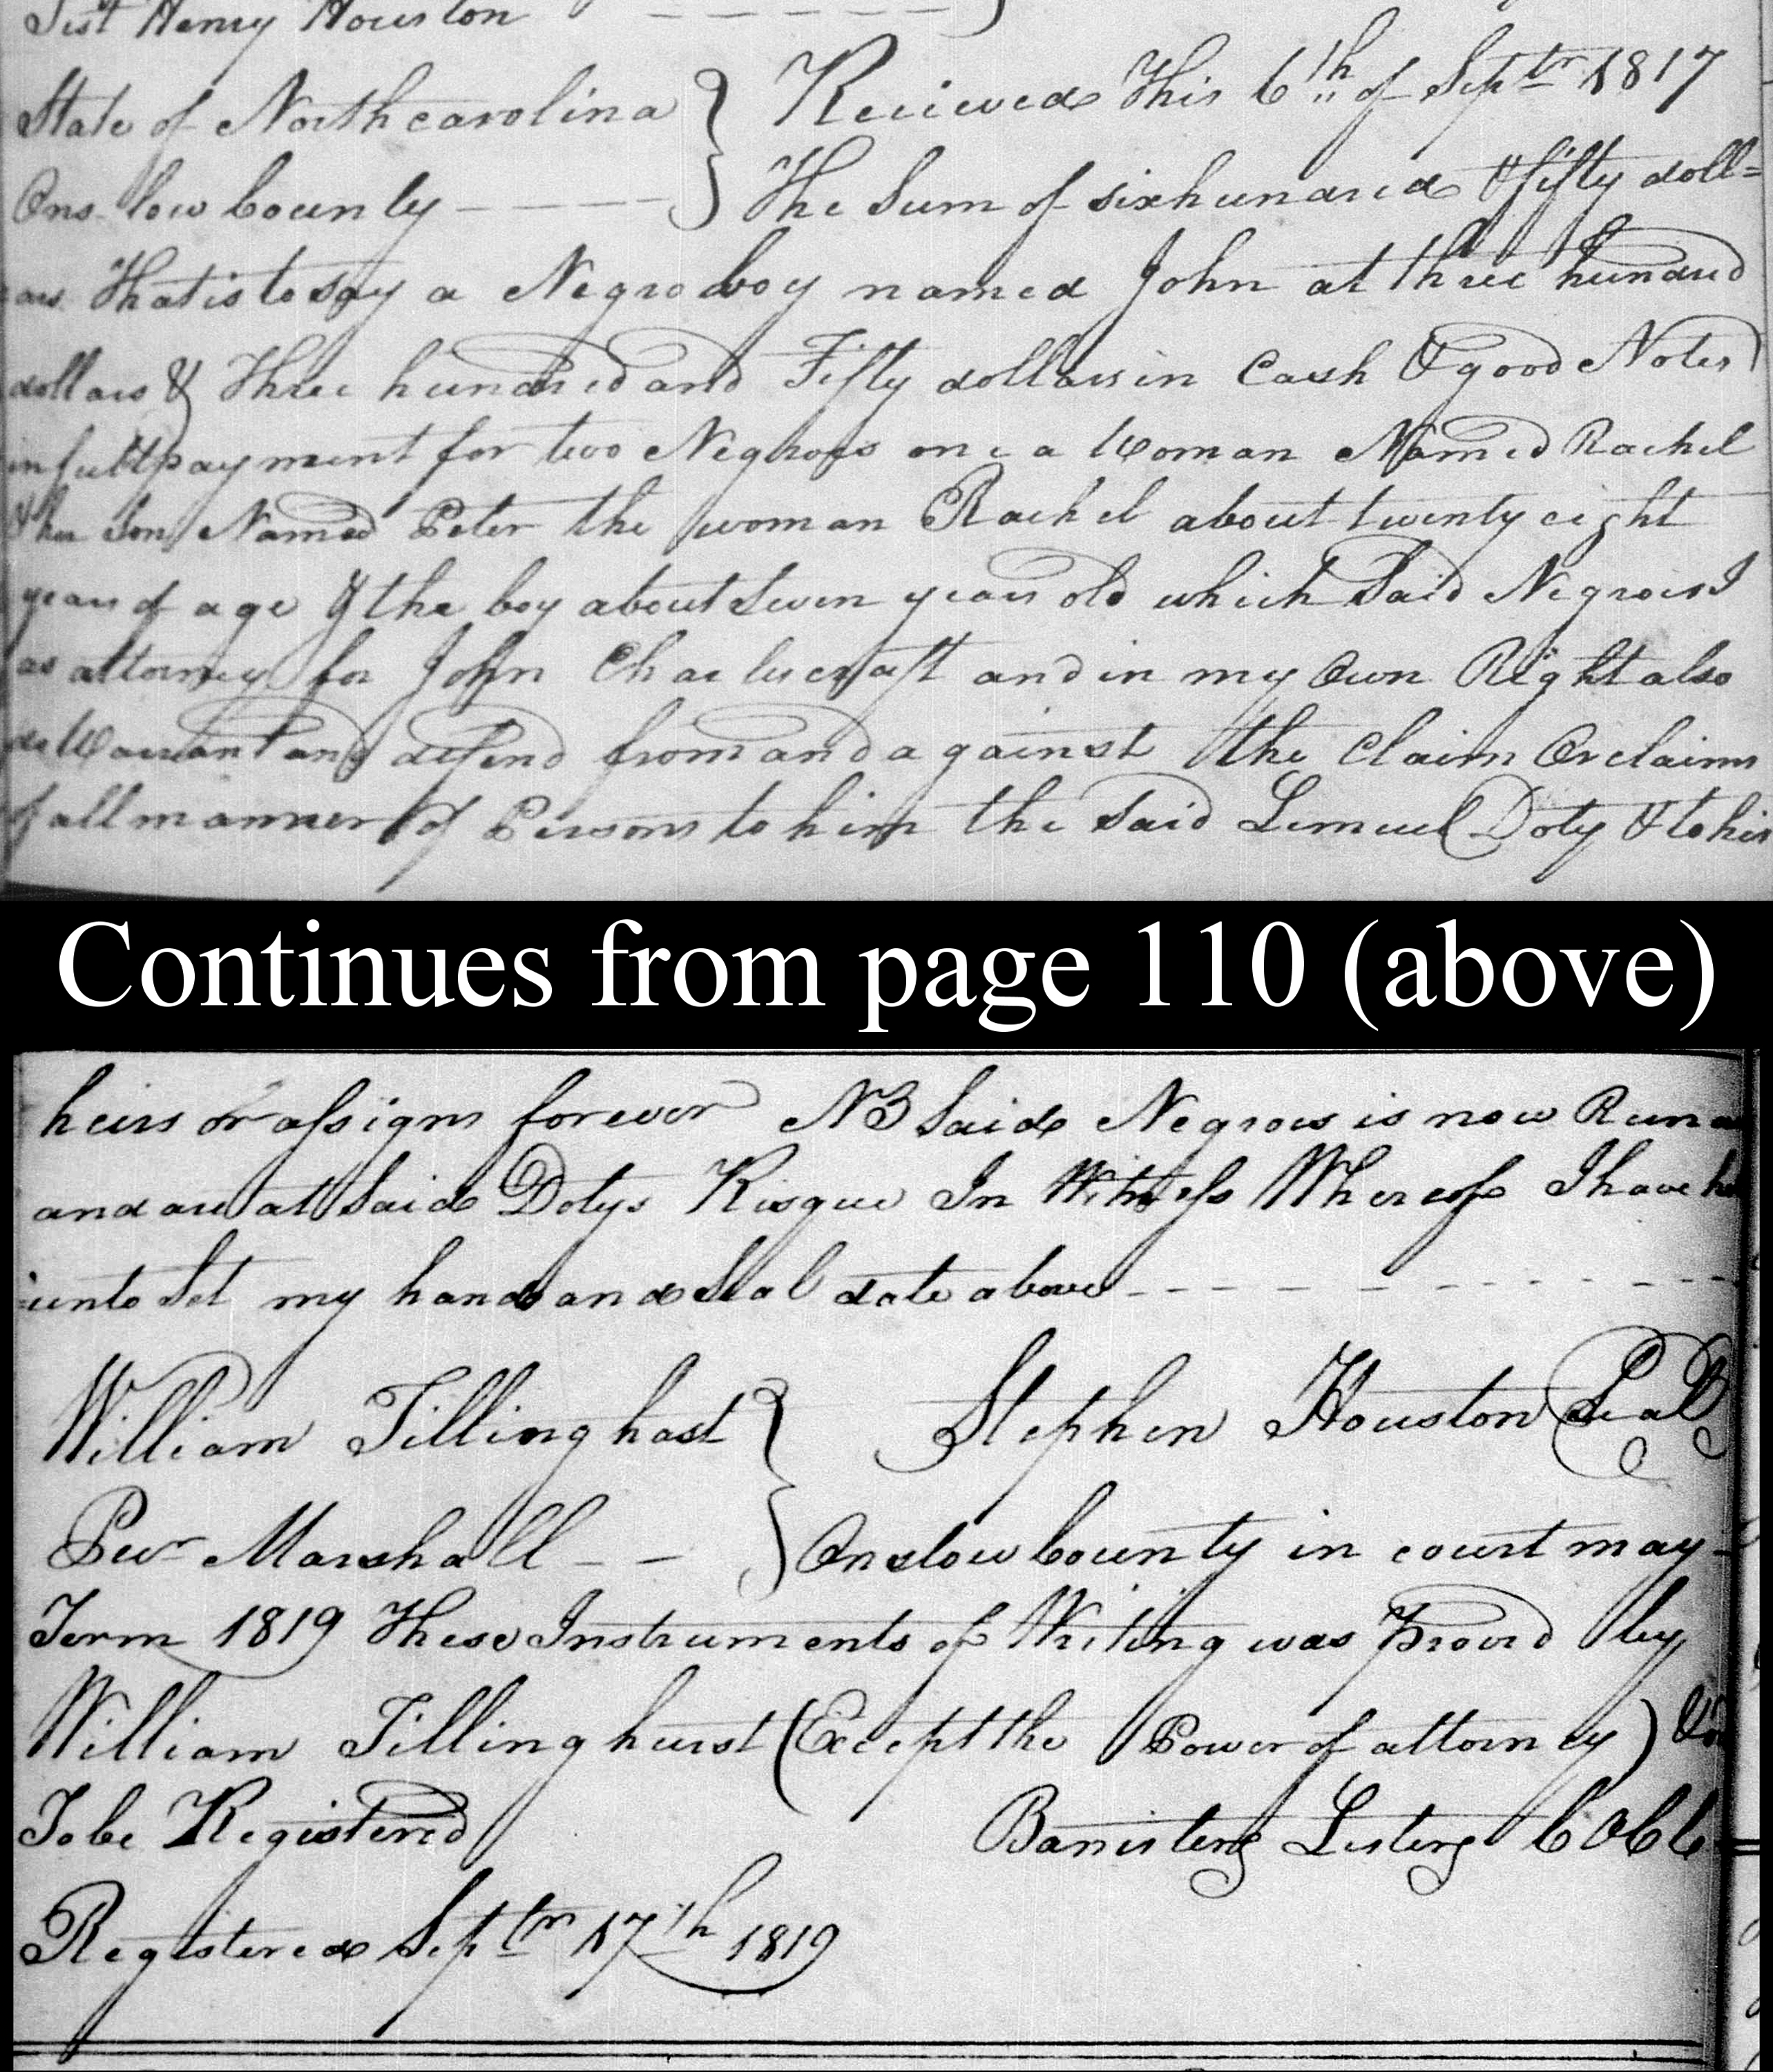 Test Henry Houston - - - - - - }
State of Northcarolina } Recieved This 6th of Septr 1817
Ons-low County - - - - } The Sum of six hundred & fifty doll=
ars That is to say a Negro boy named John at three hundred
dollars & Three hundred and Fifty dollars in Cash & good Notes
in full payment for two Negroes one a Woman Named Rachel
& her Son Named Peter the woman Rachel about twenty eight
years of age & the boy about Seven years old which Said Negroes I
as attorney for John Charlescraft and in my Own Right also
do Warrant and defend from and against the Claim Or claims
of all manner of Persons to him the Said Lemuel Doty & to his
Continues from page 110 (above)
heirs or assigns forever NB Said Negroes is now Run
and are at Said Dotys Risque In Witness Whereof I have
=unto Set my hand and Seal date above - - - - - - - -
William Tillinghast } Stephen Houston Seal
Marshall - - } Onslow County in court may-
Term 1819 These Instruments of Writing was Proved by
William Tillinghurst (Except the Power of attorney)
To be Registered Banisterg Lesterg
Registered Septr 17th 1819